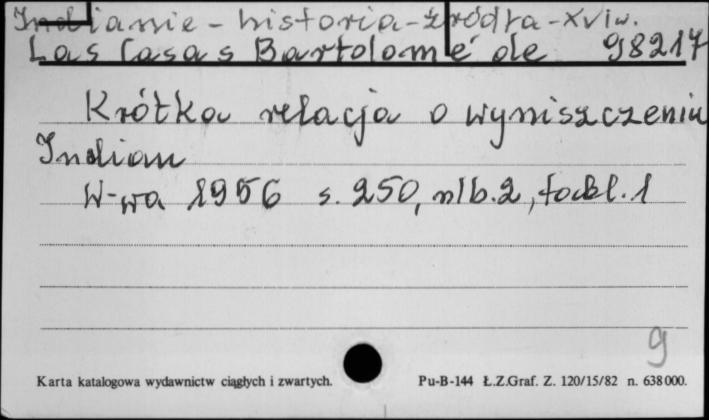 Indianie - historia - źródła - XVI w.
Las Casas Bartolomé de 98217
Krótka relacja o wyniszczeniu
Indian
W-wa 1956 s. 250, nlb. 2, tabl. 1
9
Karta katalogowa wydawnictw ciągłych i zwartych. Pu-B-144 Ł.Z.Graf. Z. 120/15/82 n. 638 000.